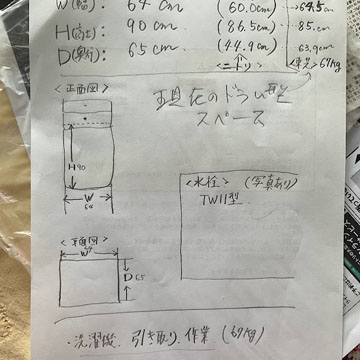 W(幅): 64 cm (60.0cm) →64.5cm
H(高さ): 90 cm (86.5cm) 85.cm
D(奥行): 65 cm (44.9cm) 63.9cm
<ニトリ> 67kg
<正面図>
現在のドラム型
スペース
H90
W
64
<水栓> (写真あり)
TW11型
<平面図>
W
D 65
・洗濯機、引き取り、作業 (67kg)